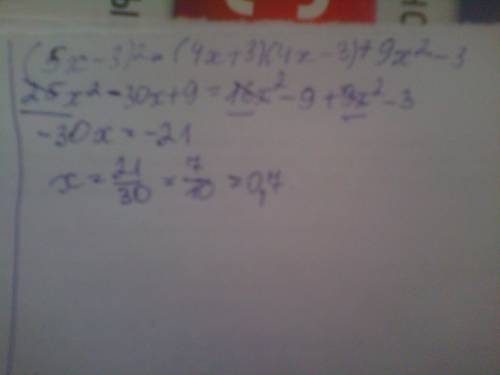 ы
НС
(5x-3)2=(4x+3)(4x-3)+9x²-3
25x²-30x+9=16x²-9+9x²-3
-30x=-21
x=21/30=7/10=0,7